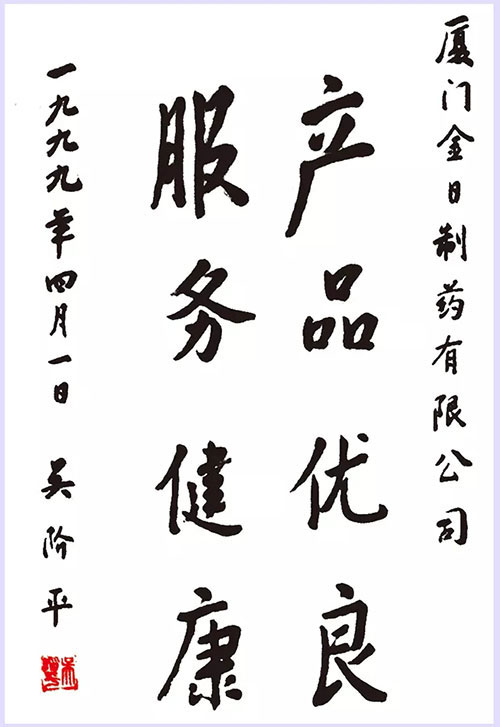 厦门金日制药有限公司
产品优良
服务健康
一九九九年四月一日 吴阶平